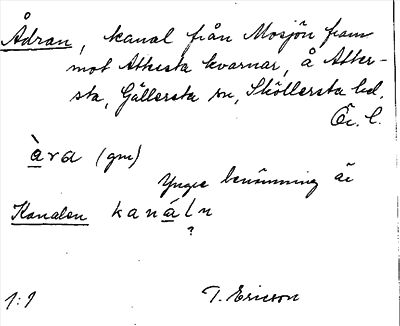 Ådran, kanal från Mosjön fram
mot Attersta kvarnar, å Atter-
sta, Gällersta sn, Sköllersta hd.
Ör. l.
àra (gm)
Yngre benämning är
Kanalen kanáln
?
1:1 T. Ericson